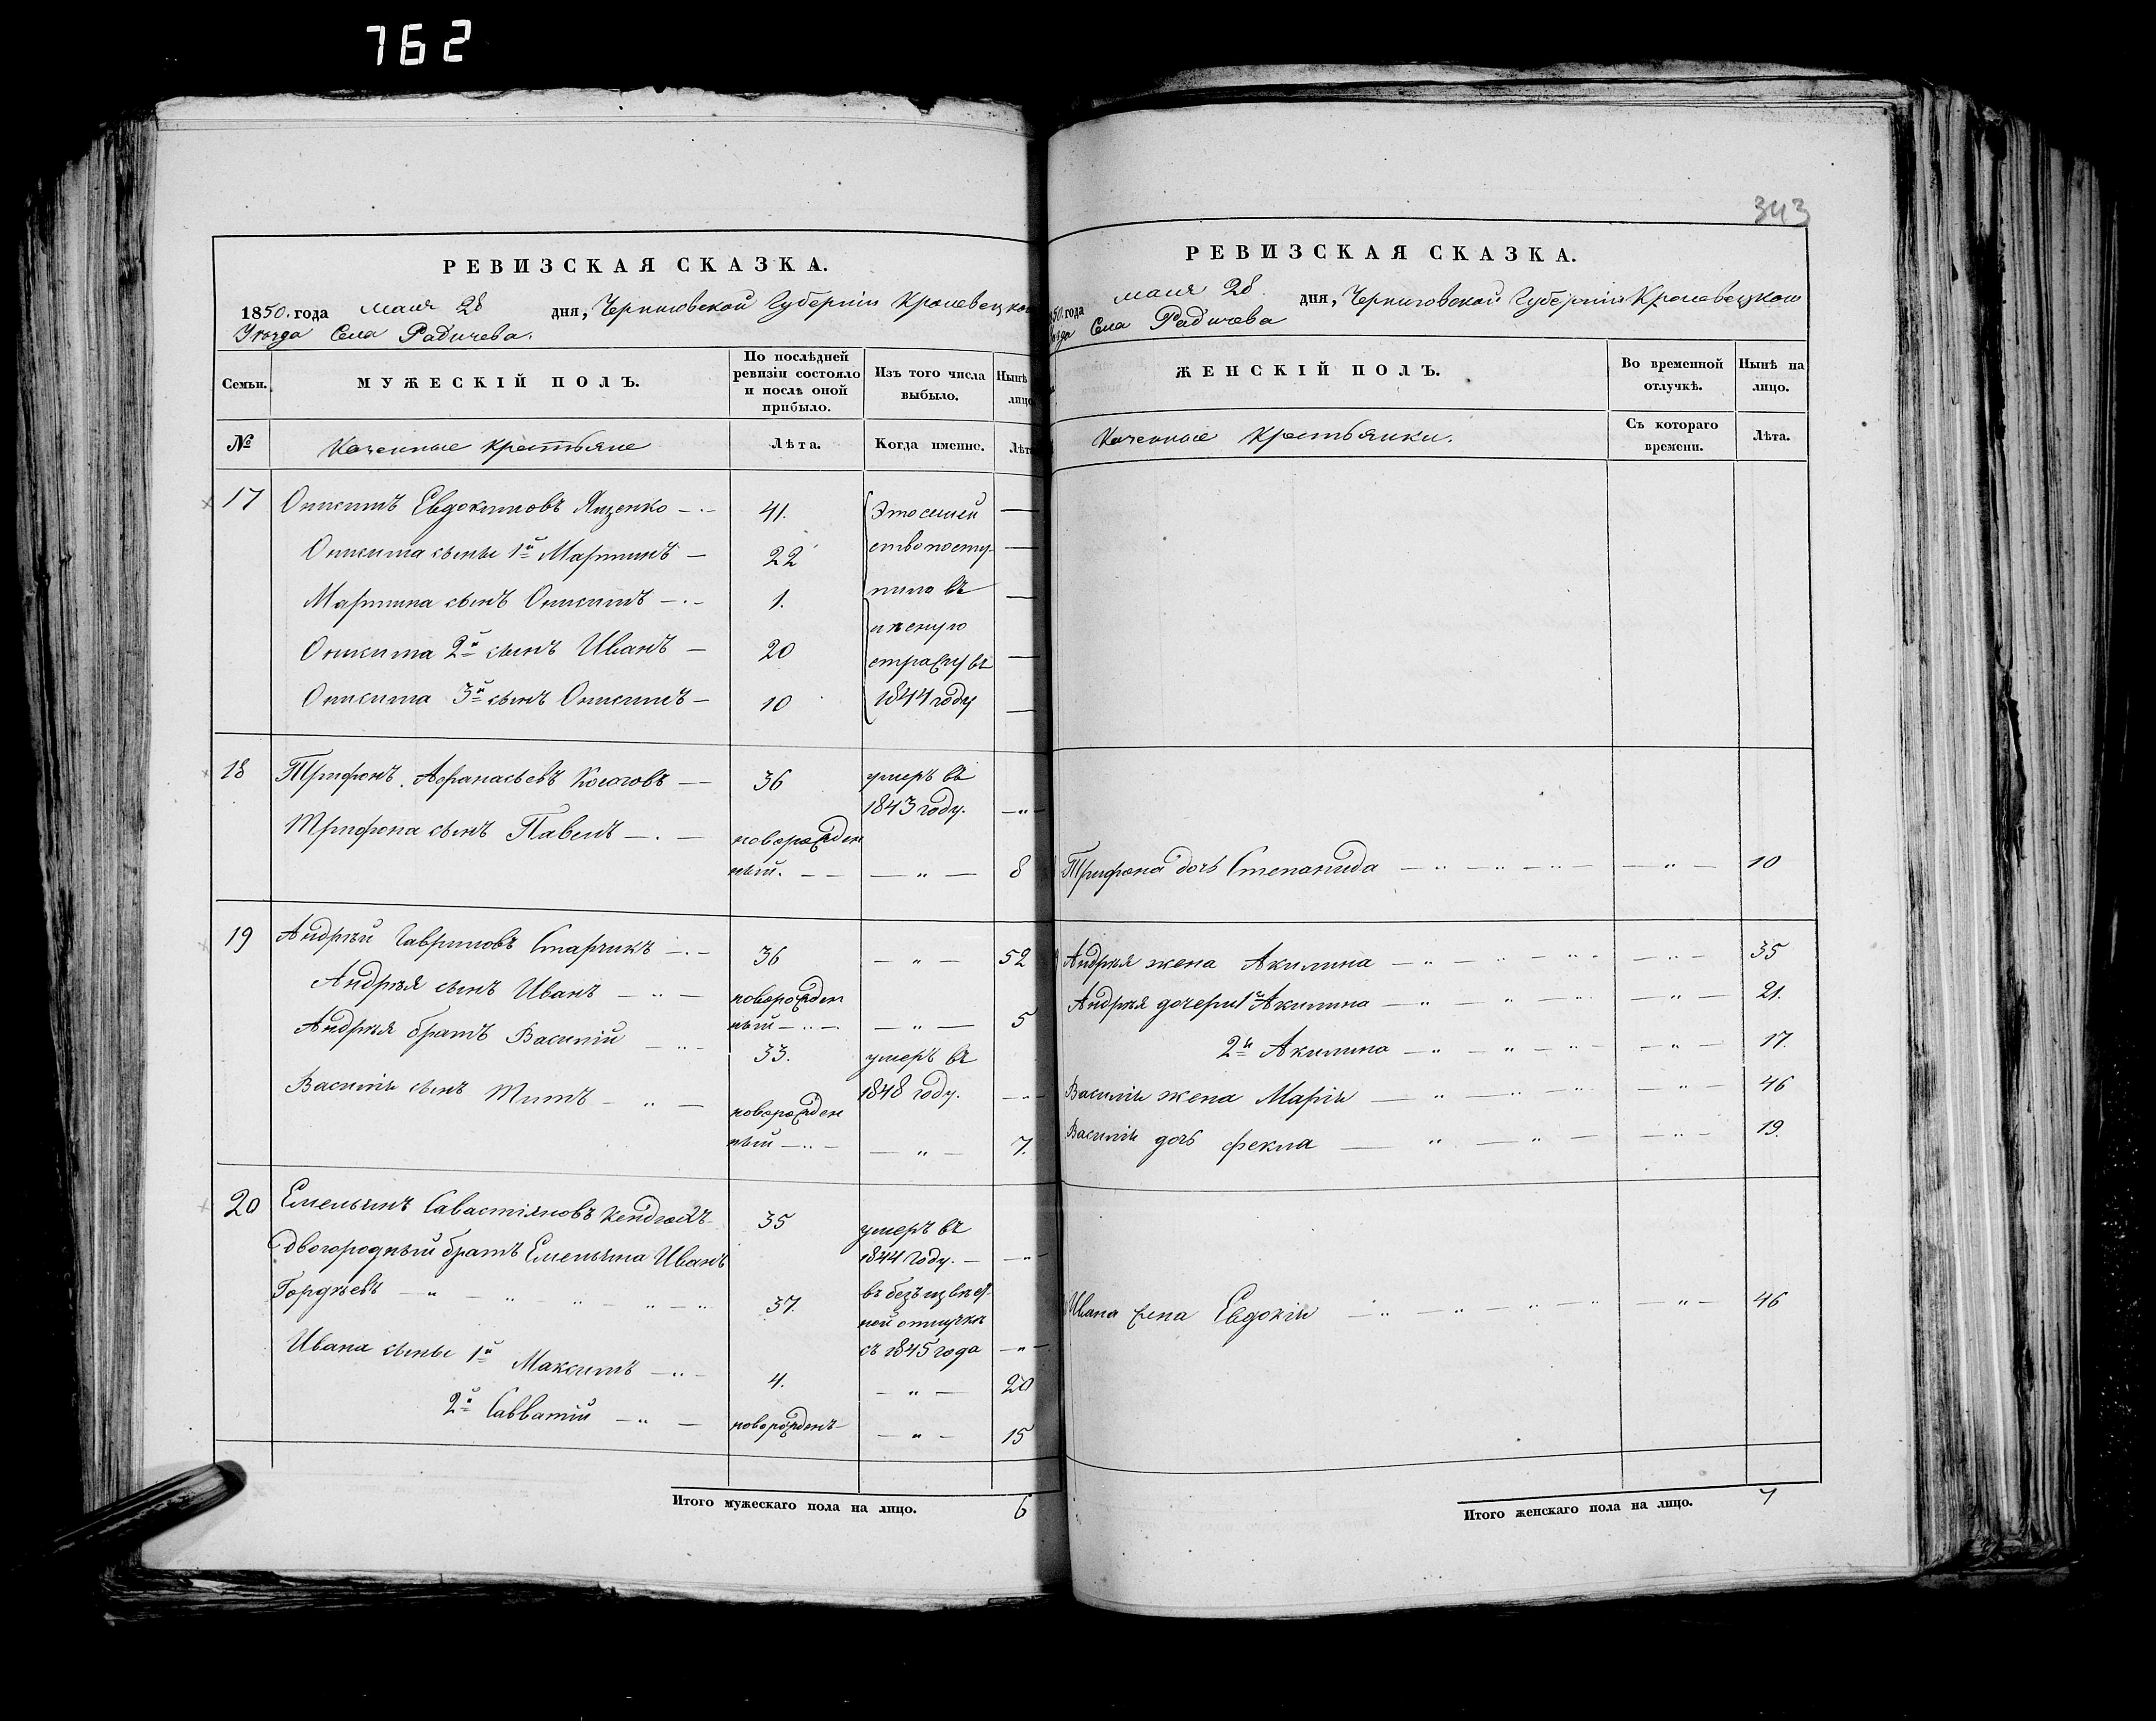 762
РЕВИЗСКАЯ СКАЗКА.
1850. года маия 28 дня, Черниговской Губерніи Кролевецкого
Уѣзда Села Радичева.
Семьи.
МУЖЕСКІЙ ПОЛЪ.
По послѣдней ревизіи состояло и послѣ оной прибыло.
Изъ того числа выбыло.
Нынѣ лицо
№
Казенные крестьяне
Лѣта.
Когда именно.
Лѣта
17 Онисимъ Евдокимовъ Яценко 41.
Онисима сыны 1й Мартинъ 22
Мартина сынъ Онисимъ 1.
Онисима 2й сынъ Иванъ 20
Онисима 3й сынъ Онисимъ 10
Это семей
ство посту
пило въ
лѣсную
стражу въ
1844 году
18 Трифонъ Афанасьевъ 36 умеръ въ
1843 году.
Трифона сынъ Павелъ новорожден
ный. 8
19 Андрѣй Гавриловъ Старикъ 36 52
Андрѣя сынъ Иванъ новорожден
ный 5
Андрѣя братъ Василій 33. умеръ въ
1848 году.
Василія сынъ Титъ новорожден
ный 7.
20 Емельянъ Савастіяновъ 35 умеръ въ
1844 году.
двоюродный братъ Емельяна Иванъ
Гордѣевъ 37. въ безъизвѣст
ной отлучкѣ
съ 1845 года
Ивана сыны 1й Максимъ 4. 20
2й Савватій новорожденъ 15
Итого мужескаго пола на лицо. 6
343
РЕВИЗСКАЯ СКАЗКА.
1850. года маия 28. дня, Черниговской Губерніи Кролевецкого
Уѣзда Села Радичева
ЖЕНСКІЙ ПОЛЪ.
Во временной отлучкѣ.
Нынѣ на лицо.
Казенные крестьянки.
Съ котораго времени.
Лѣта.
Трифона дочь Степанида 10
Андрѣя жена Акилина 35
Андрѣя дочери 1я Акилина 21.
2я Акилина 17.
Василія жена Марія 46
Василія дочь Фекла 19.
Ивана жена Евдокія 46
Итого женскаго пола на лицо. 7